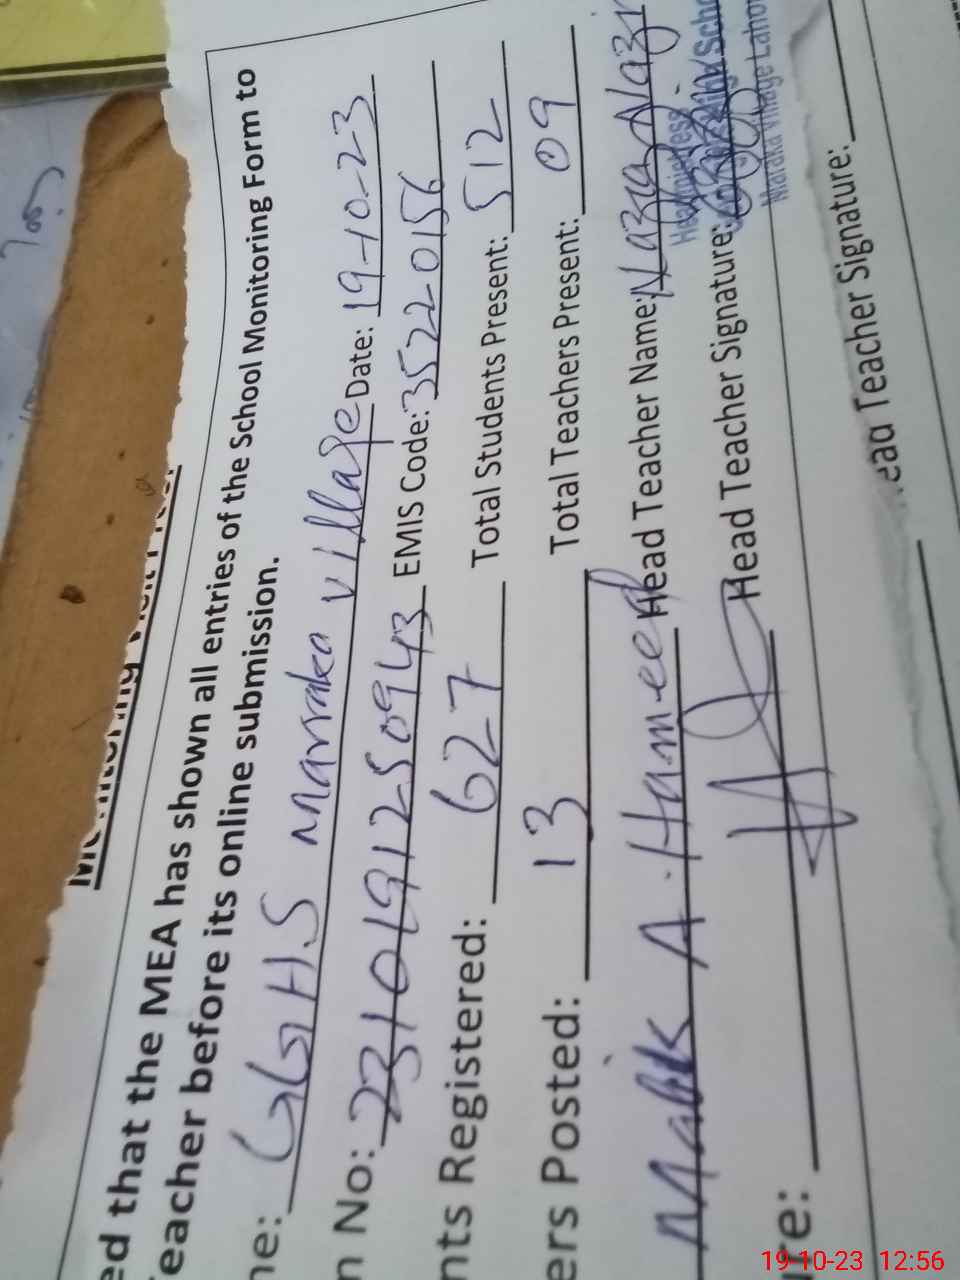 ed that the MEA has shown all entries of the School Monitoring Form to
Teacher before its online submission.
ne: GGHS Maraka village Date: 19-10-23
n No: 2310191250943 EMIS Code: 35220156
nts Registered: 627 Total Students Present: 512
ers Posted: 13 Total Teachers Present: 09
Malik A. Hameed Head Teacher Name: Nazia Nazir
Head Teacher Signature:
Headmistress
Maraka Village Lahor
ure: ead Teacher Signature:
19-10-23 12:56